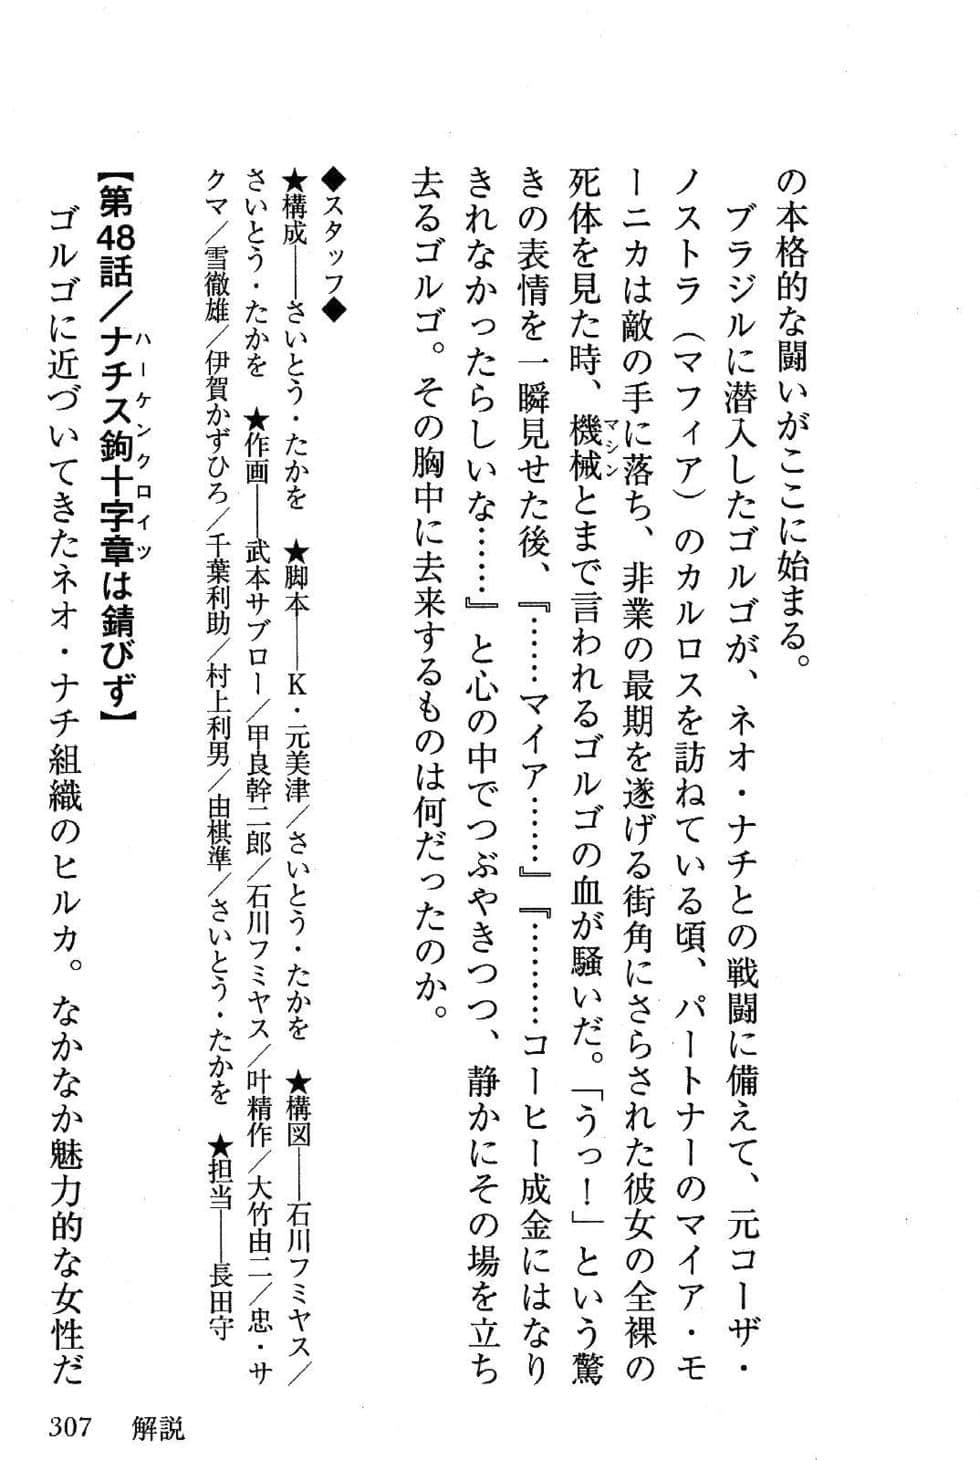 の本格的な闘いがここに始まる。
ブラジルに潜入したゴルゴが、ネオ・ナチとの戦闘に備えて、元コーザ・
ノストラ（マフィア）のカルロスを訪ねている頃、パートナーのマイア・モ
ーニカは敵の手に落ち、非業の最期を遂げる街角にさらされた彼女の全裸の
死体を見た時、機械とまで言われるゴルゴの血が騒いだ。「うっ！」という驚
マシン
きの表情を一瞬見せた後、『……マイア……』『………コーヒー成金にはなり
きれなかったらしいな……』と心の中でつぶやきつつ、静かにその場を立ち
去るゴルゴ。その胸中に去来するものは何だったのか。
◆スタッフ◆
★構成――さいとう・たかを ★脚本――K・元美津／さいとう・たかを ★構図――石川フミヤス／
さいとう・たかを ★作画――武本サブロー／甲良幹二郎／石川フミヤス／叶精作／大竹由二／忠・サ
クマ／雪徹雄／伊賀かずひろ／千葉利助／村上利男／由棋準／さいとう・たかを ★担当――長田守
【第48話／ナチス鉤十字章は錆びず】
ハーケンクロイツ
ゴルゴに近づいてきたネオ・ナチ組織のヒルカ。なかなか魅力的な女性だ
307 解説